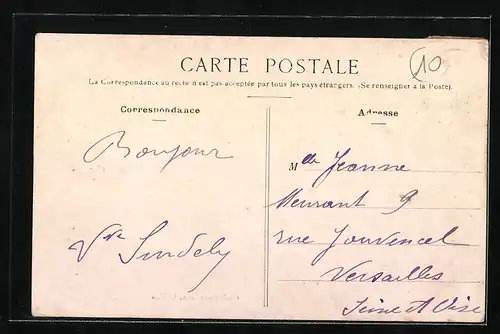 CARTE POSTALE
10
La Correspondance au recto n'est pas acceptée par tous les pays étrangers. (Se renseigner à la Poste).
Correspondance
Adresse
Bonjour
Mlle Jeanne
Meurant 9
rue Jouvencel
Versailles
Seine et Oise